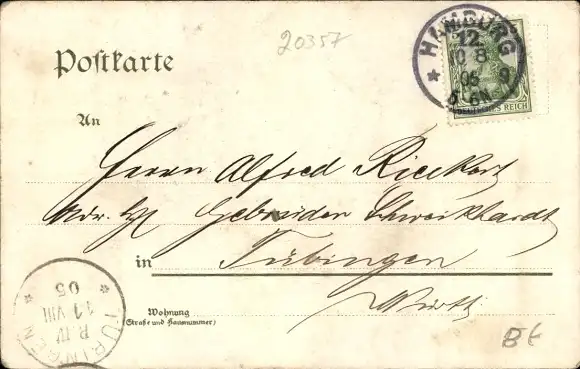 20357
HAMBURG
12
10 8
05
5-6N
DEUTSCHES REICH
Postkarte
An
Herrn Alfred Rieckert
Adr. Gebrüder Schweikhardt
in Tübingen
Württ.
Wohnung
(Straße und Hausnummer)
TÜBINGEN
11 VIII
05